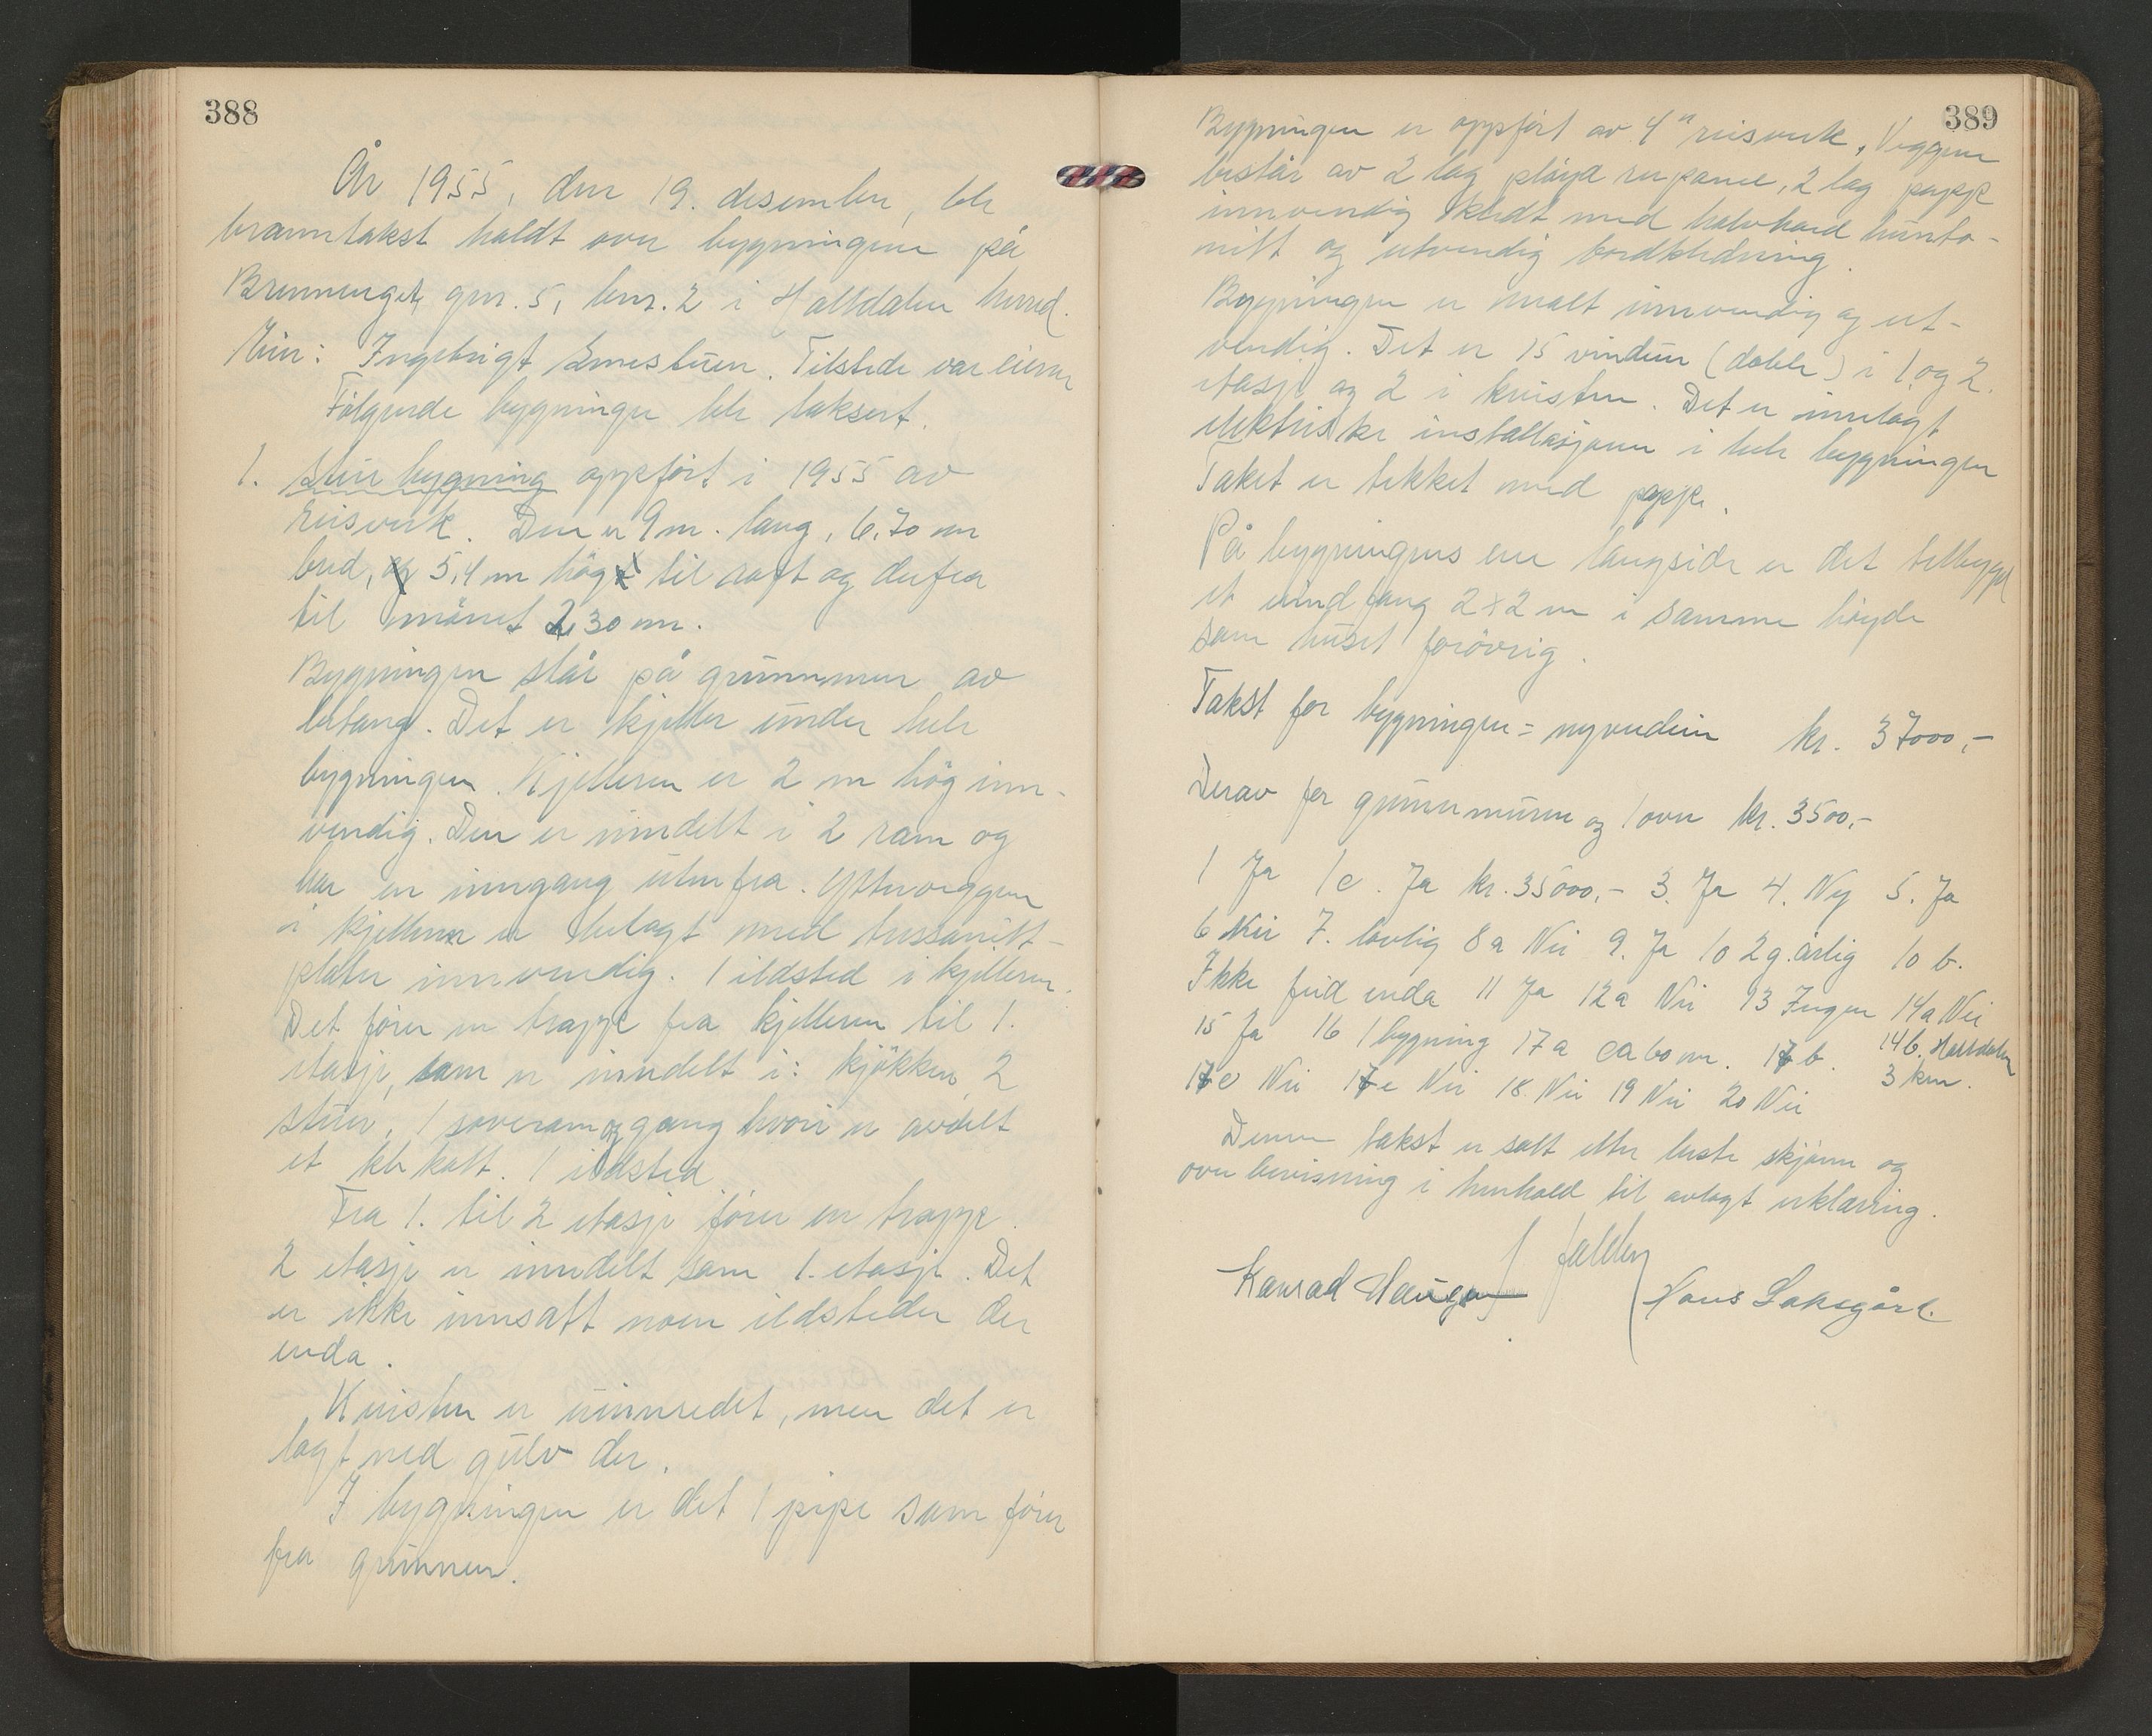 388
År 1955, den 19. desember, ble
branntakst holdt over bygningene på
gnr. 5, bnr. 2 i Haltdalen herred.
Eier: Ingebrigt Ernestuen. Tilstede var eieren
Følgende bygninger ble taksert.
1. Stuebygning oppført i 1955 av
reisverk. Den er 9 m. lang, 6,70 m
bred, 5,4 m høg til raft og derfra
til mønet 2,30 m.
Bygningen står på grunnmur av
betong. Det er kjeller under hele
bygningen. Kjelleren er 2 m høg inn-
vendig. Den er inndelt i 2 rom og
har en inngang utenfra. Ytterveggene
i kjelleren er belagt med tressonitt-
plater innvendig. 1 ildsted i kjelleren.
Det fører en trapp fra kjelleren til 1.
etasje, som er inndelt i: kjøkken, 2
stuer, 1 soverom og gang hvori er avdelt
et klekott. 1 ildsted
Fra 1. til 2 etasje fører en trapp.
2 etasje er inndelt som 1. etasje. Det
er ikke innsatt noen ildsteder der
enda.
Kvisten er uinnredet, men det er
lagt ned gulv der.
I bygningen er det 1 pipe som fører
fra grunnen.
389
Bygningen er oppført av 4" reisverk. Veggene
består av 2 lag pløyd rupanel, 2 lag papp
innvendig kledt med halvhard hunto-
nitt og utvendig bordkledning.
Bygningen er malt innvendig og ut-
vendig. Det er 15 vinduer (doble) i 1. og 2.
etasje og 2 i kvisten. Det er innlagt
elektriske installasjoner i hele bygningen
Taket er tekket med papp.
På bygningens ene langside er det tilbygd
et vindfang 2x2 m i samme høyde
som huset forøvrig.
Takst for bygningen = nyverdien kr. 37000,-
Derav for grunnmuren og 1 ovn kr. 3500,-
1 Ja 1c. Ja kr. 35000,- 3. Ja 4. Ny 5. Ja
6 Nei 7. lovlig 8a Nei 9. Ja 10 2 g. årlig 10 b.
Ikke feid enda 11 Ja 12a Nei 13 Ingen 14a Nei
15 Ja 16 1 bygning 17a ca 60 m. 17b. 14b. Haltdalen
3 km.
17c Nei 17e Nei 18. Nei 19 Nei 20 Nei
Denne takst er satt etter beste skjønn og
overbevisning i henhold til avlagt erklæring.
Konrad Haugen
Hans Laksgård.